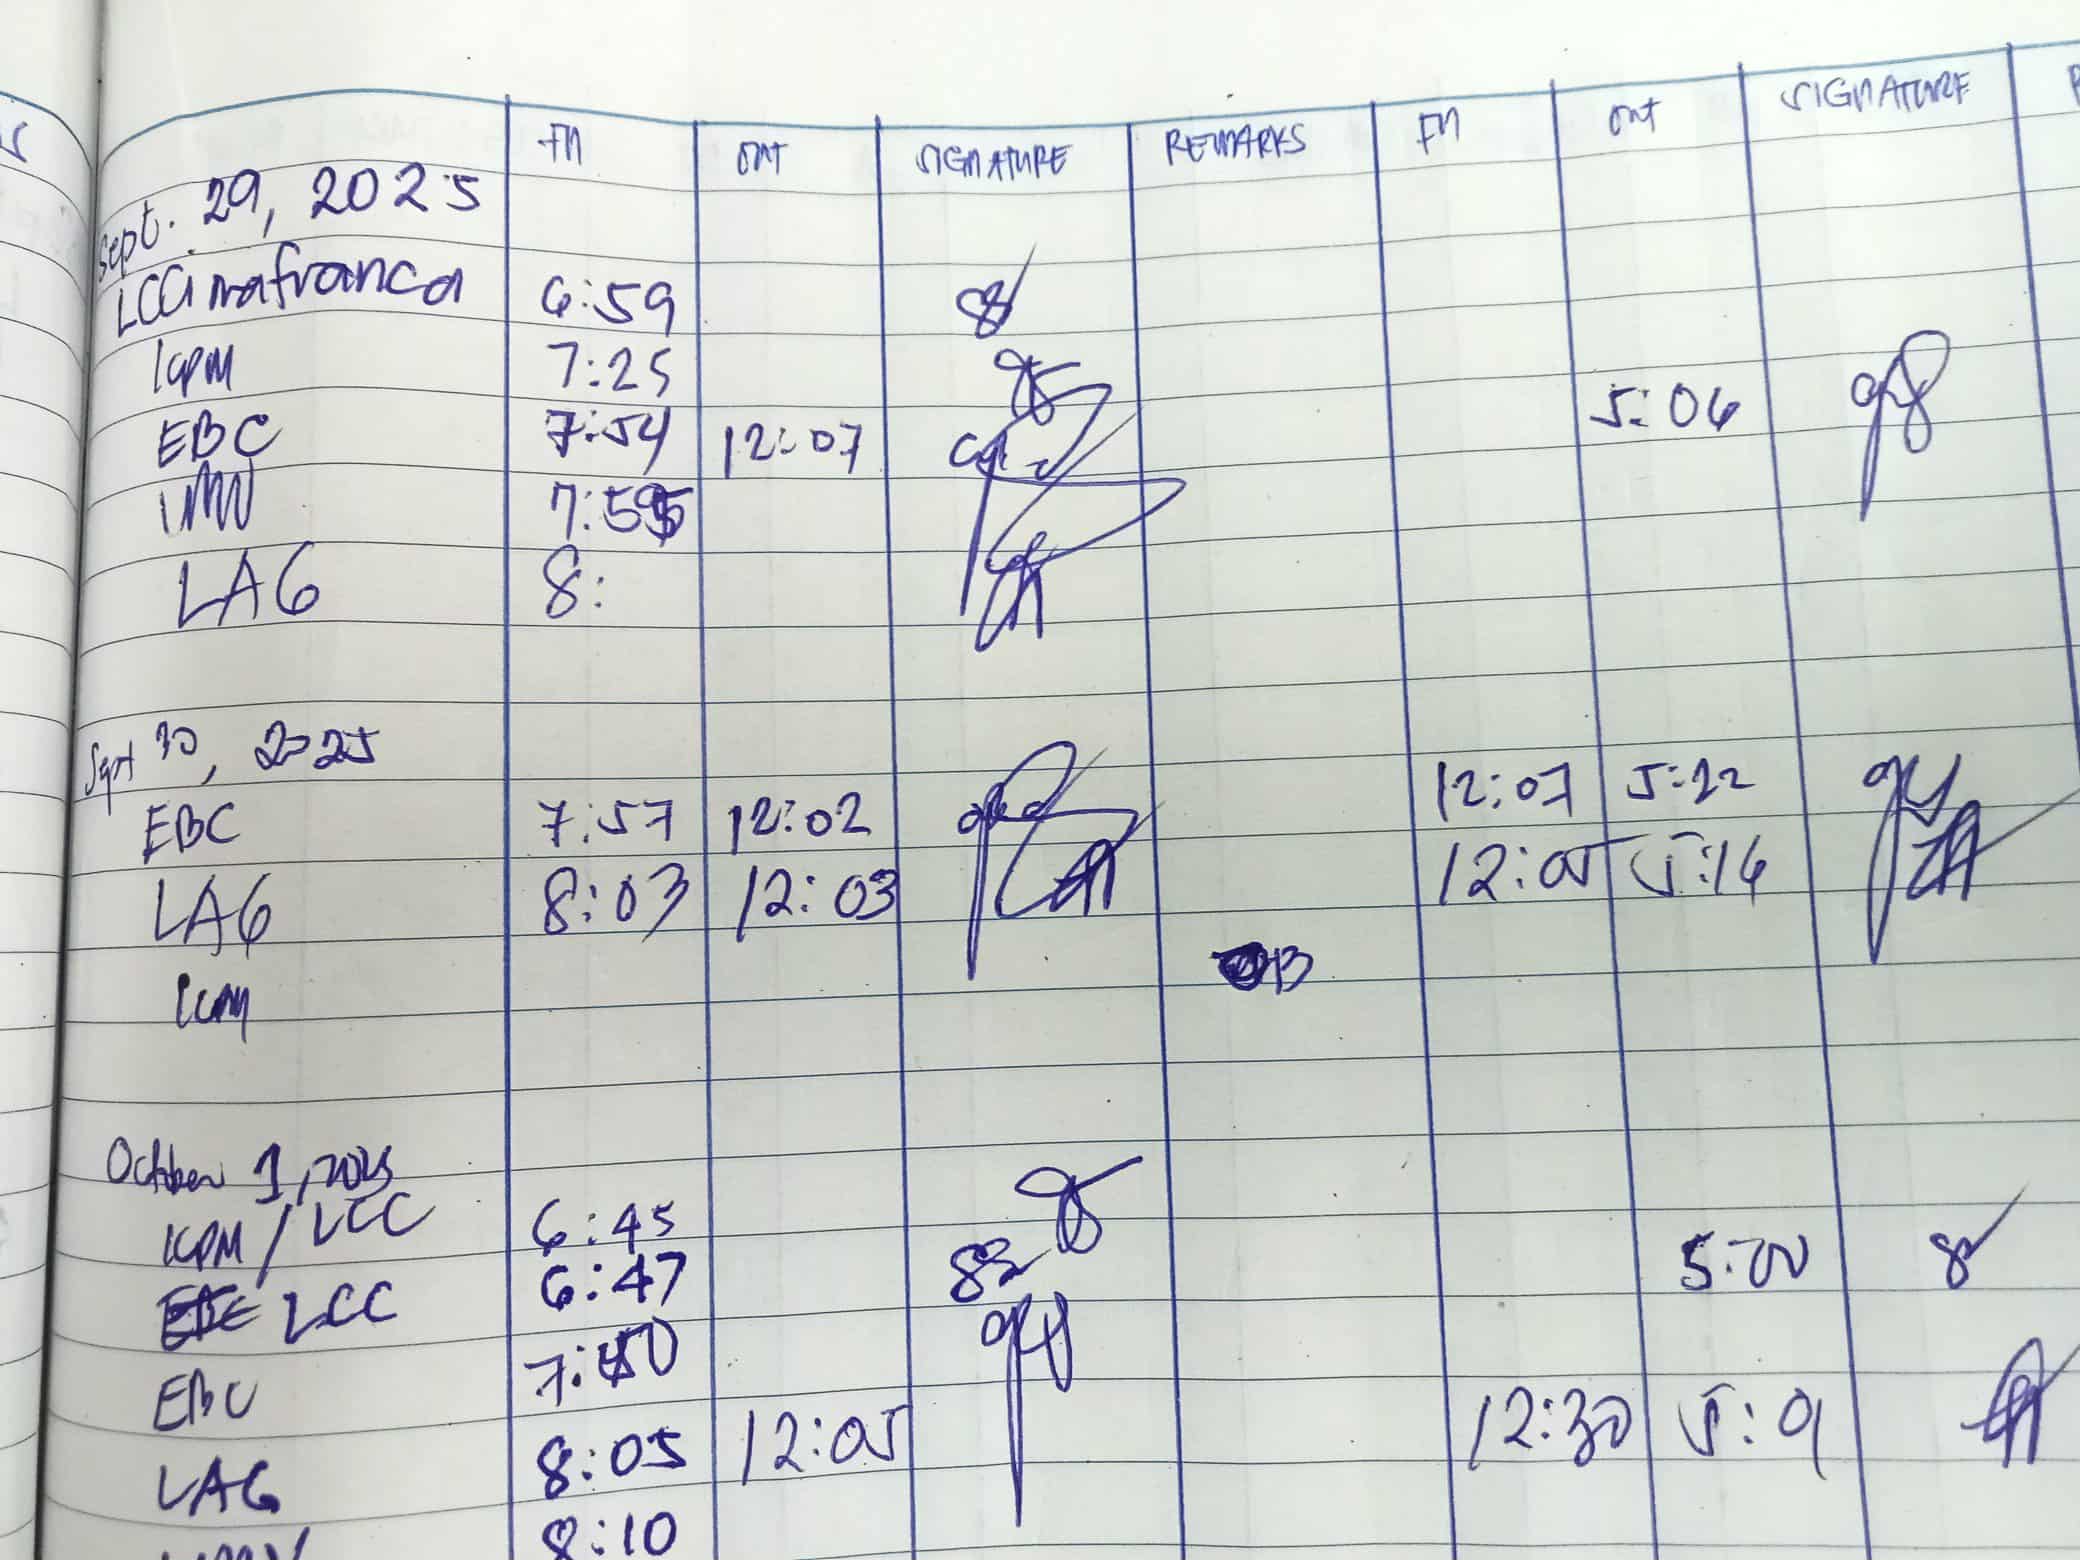 IN OUT SIGNATURE REMARKS IN OUT SIGNATURE
Sept. 29, 2025
LCCinafranca 6:59
KPM 7:25
EBC 7:54 12:07 5:06
7:55
LAG 8:
Sept 30, 2025
EBC 7:57 12:02 12:07 5:22
LAG 8:03 12:03 12:05 5:16
OB
October 1, 2025
KPM / LCC 6:45
LCC 6:47 5:00
EBC 7:50
LAG 8:05 12:05 12:30 5:01
8:10